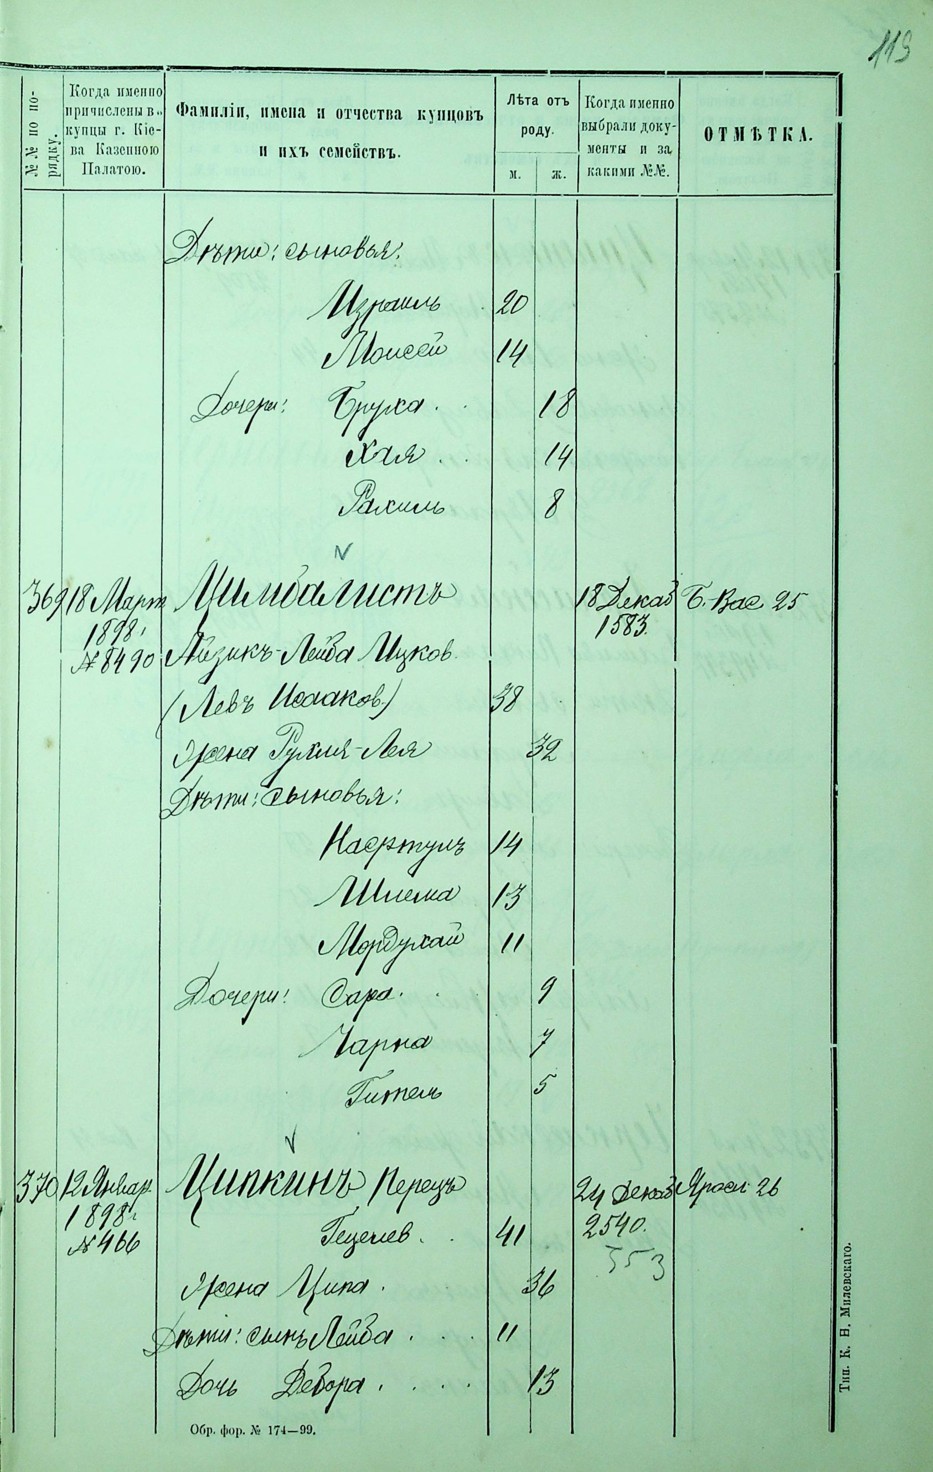 119
№№ по по-
рядку.
Когда именно
причислены в
купцы г. Кіе-
ва Казенною
Палатою.
Фамиліи, имена и отчества купцовъ
и ихъ семействъ.
Лѣта отъ
роду.
м. ж.
Когда именно
выбрали доку-
менты и за
какими №№.
ОТМѢТКА.
Дѣти: сыновья:
Израиль 20
Моисей 14
Дочери: Бруха 18
Хая 14
Рахиль 8
369 18 Март Цимбалистъ 18 Декаб Б. Вас 25
1898 1583.
№ 8490 Айзикъ-Лейба Ицков.
(Левъ Исааков.) 38
Жена Рухля-Лея 32
Дѣти: сыновья:
Нафтулъ 14
Шлема 13
Мордухай 11
Дочери: Сара 9
Чарна 7
Гитель 5
370 12 Январ Ципкинъ Перецъ 24 Декаб Яросл 26
1898 2540.
№ 466 Гецелев 41
553
Жена Ципа 36
Дѣти: сынъ Лейба 11
Дочь Девора 13
Обр. фор. № 174—99.
Тип. К. Н. Милевскаго.